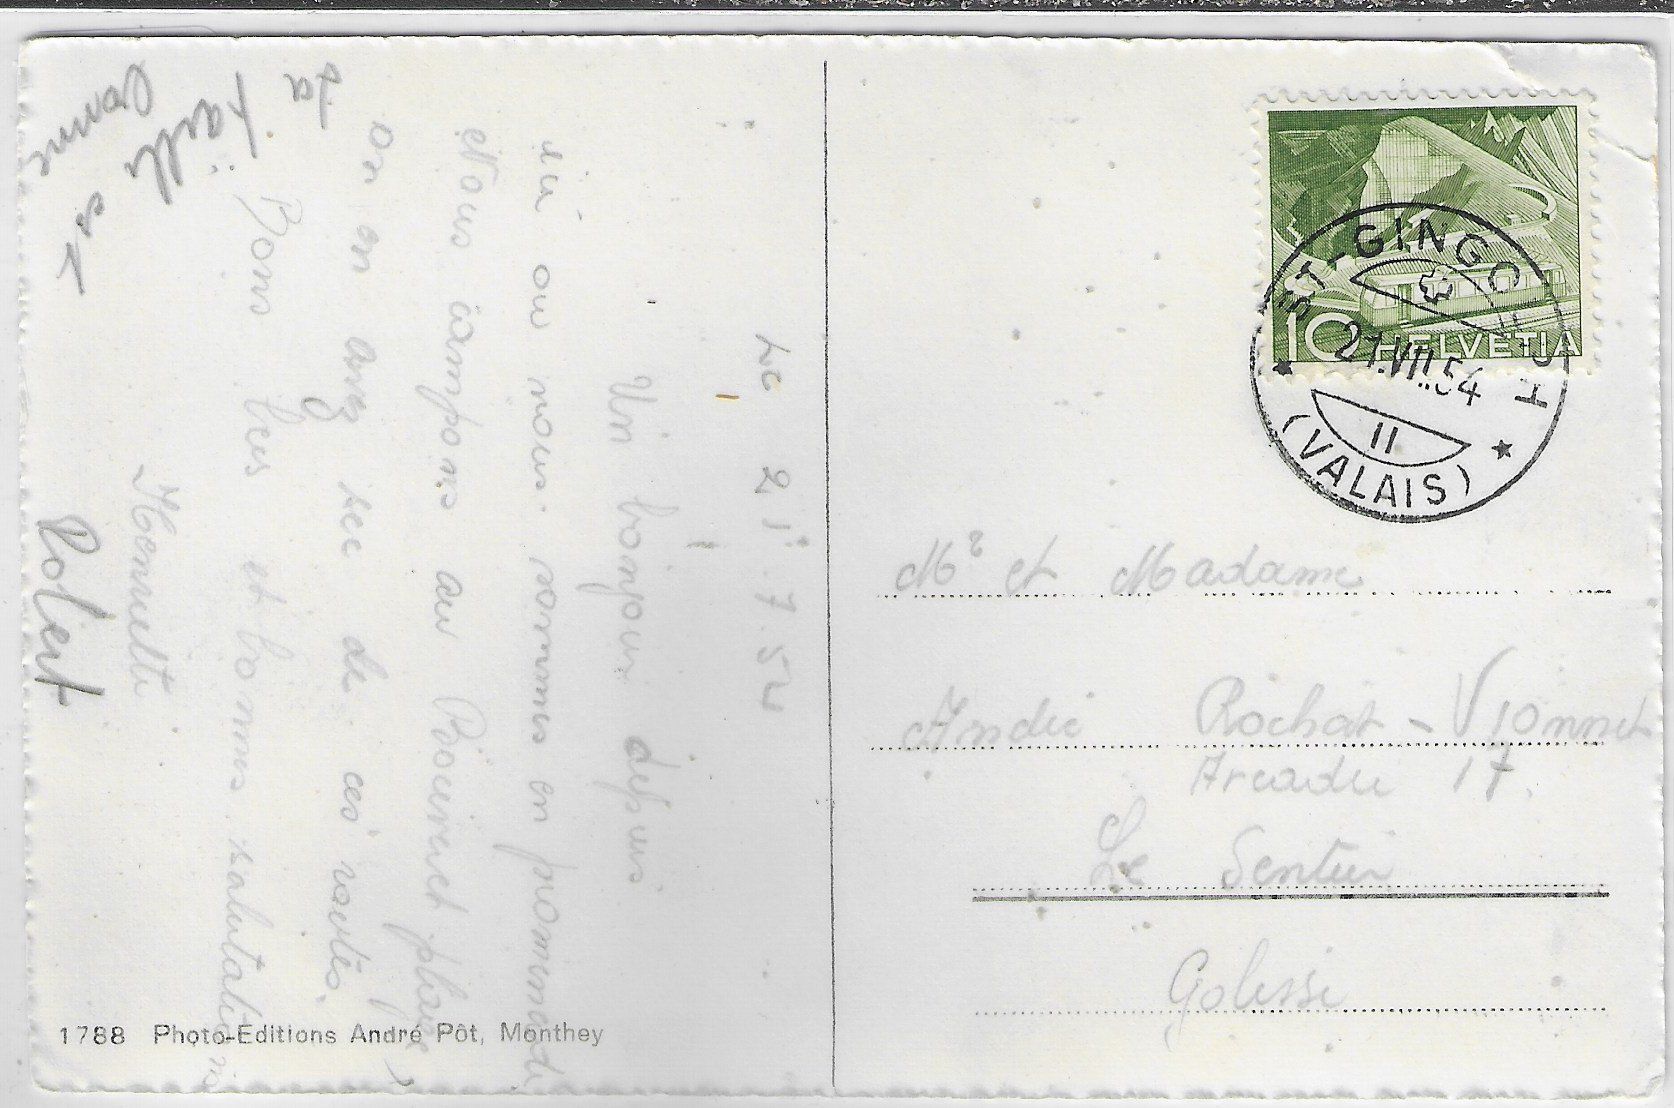 Le 21.7.54
Un bonjour depuis
ici ou nous sommes en promenade
Nous campons au Bouveret plage
on en avez sec de ces rôtis.
Bons bec et bonnes salutations
Henriette
Robert
La
bonne et
10 HELVETIA
ST-GINGOLPH
21.VII.54
II
(VALAIS)
Mr et Madame
André Rochat-Vionnet
Arcadie 17.
Le Sentier
Golisse
1788 Photo-Editions André Pôt, Monthey